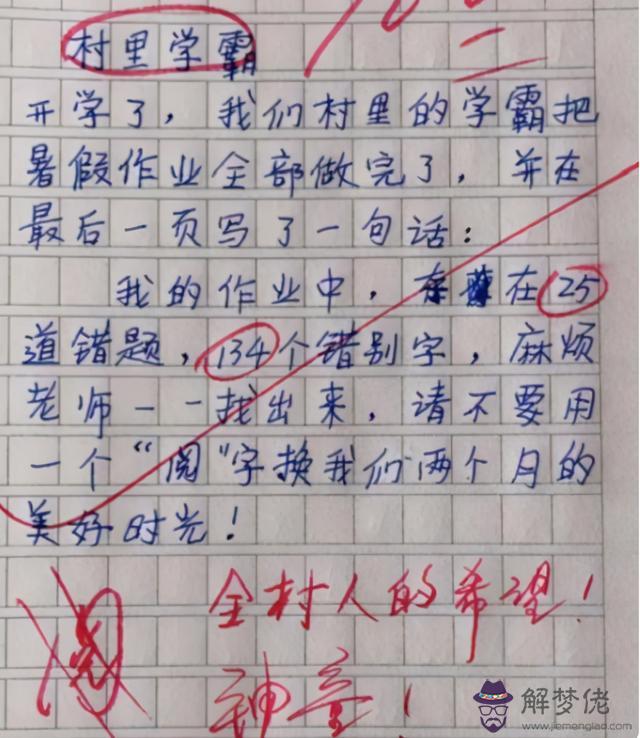 村里学霸
开学了，我们村里的学霸把
暑假作业全部做完了，并在
最后一页写了一句话：
我的作业中，存在25
道错题，134个错别字，麻烦
老师一一找出来，请不要用
一个“阅”字换我们两个月的
美好时光！
阅
全村人的希望！
神童！
解梦佬
www.jiemenglao.com